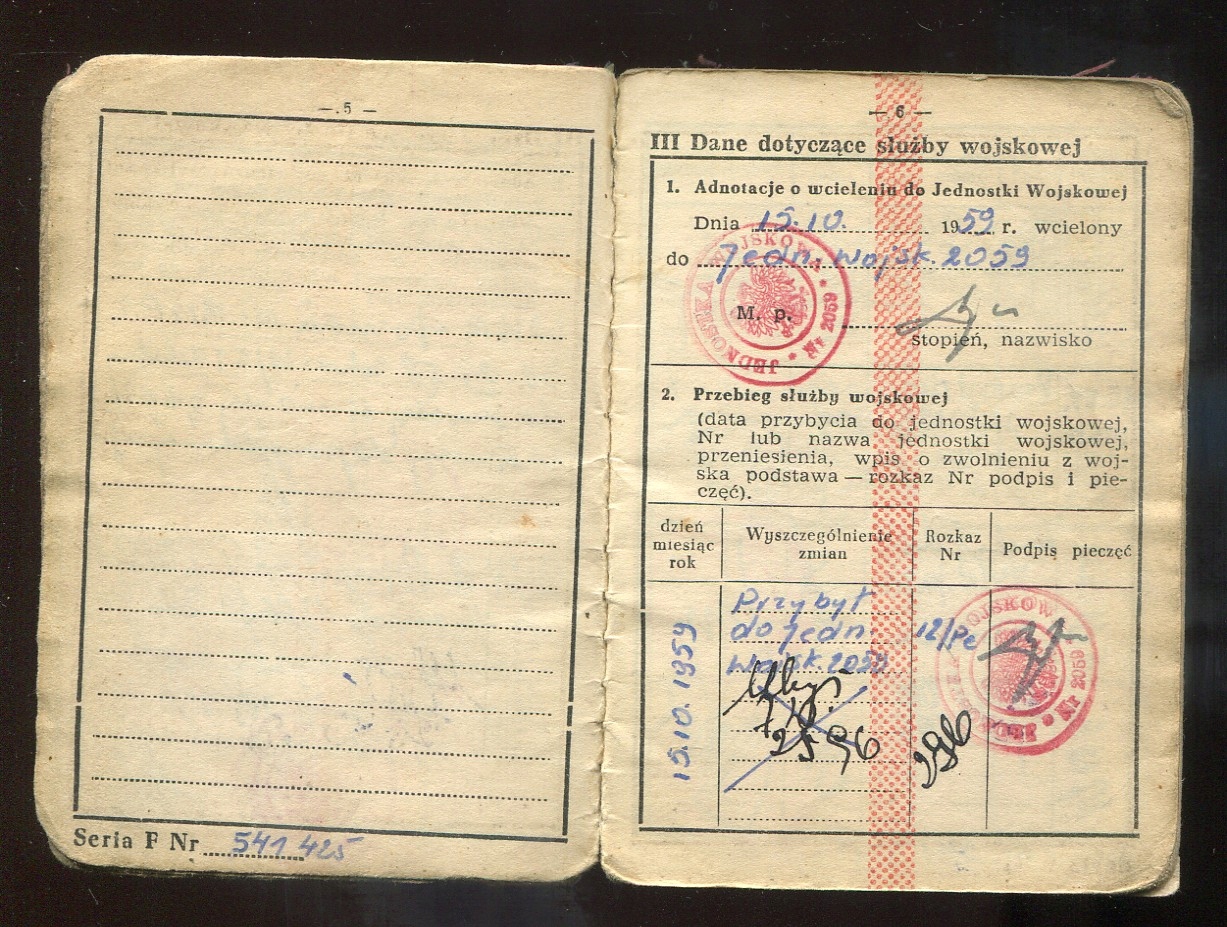 — 5 —
Seria F Nr 541425
— 6 —
III Dane dotyczące służby wojskowej
1. Adnotacje o wcieleniu do Jednostki Wojskowej
Dnia 15.10. 1959 r. wcielony
do Jedn. Wojsk. 2059
JEDNOSTKA WOJSKOWA * Nr 2059 *
M. p.
stopień, nazwisko
2. Przebieg służby wojskowej
(data przybycia do jednostki wojskowej,
Nr lub nazwa jednostki wojskowej,
przeniesienia, wpis o zwolnieniu z woj-
ska podstawa — rozkaz Nr podpis i pie-
częć).
dzień
miesiąc
rok
Wyszczególnienie
zmian
Rozkaz
Nr
Podpis pieczęć
15.10.1959
Przybył
do jedn
wojsk. 2059
12/Pe